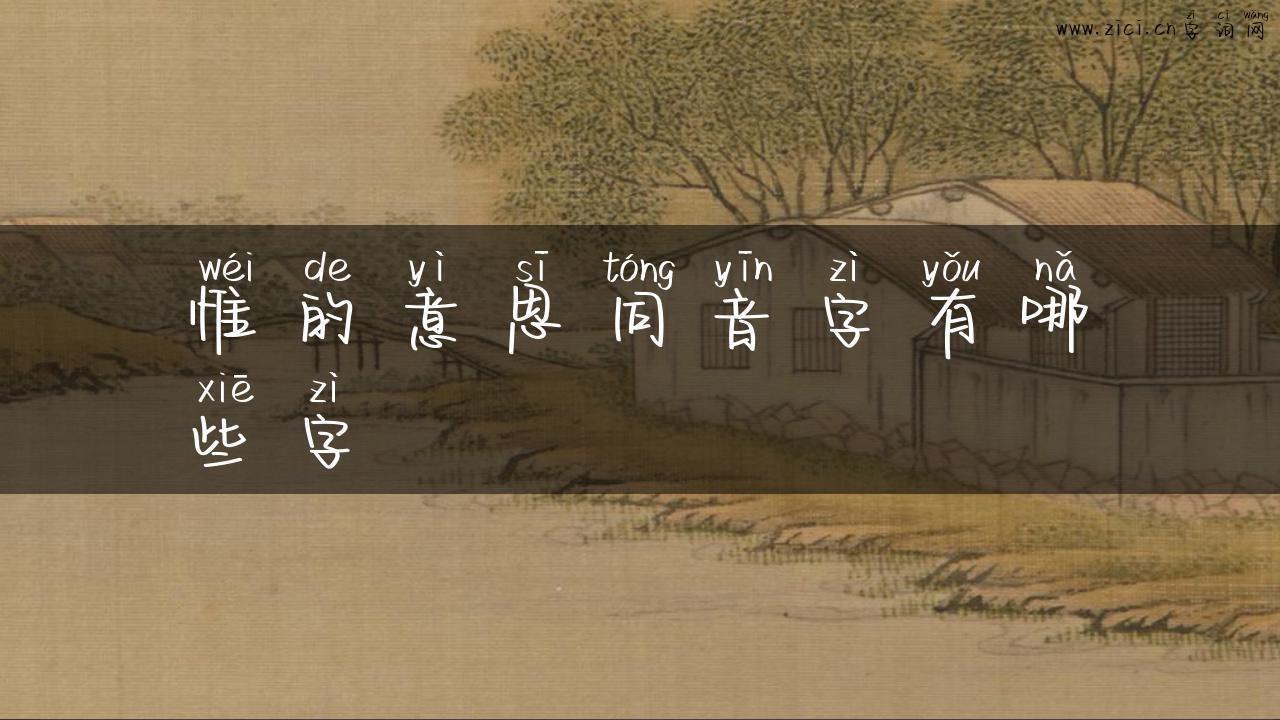 zì cí wǎng
www.zici.cn字词网
wéi de yì sī tóng yīn zì yǒu nǎ
惟的意思同音字有哪
xiē zì
些字